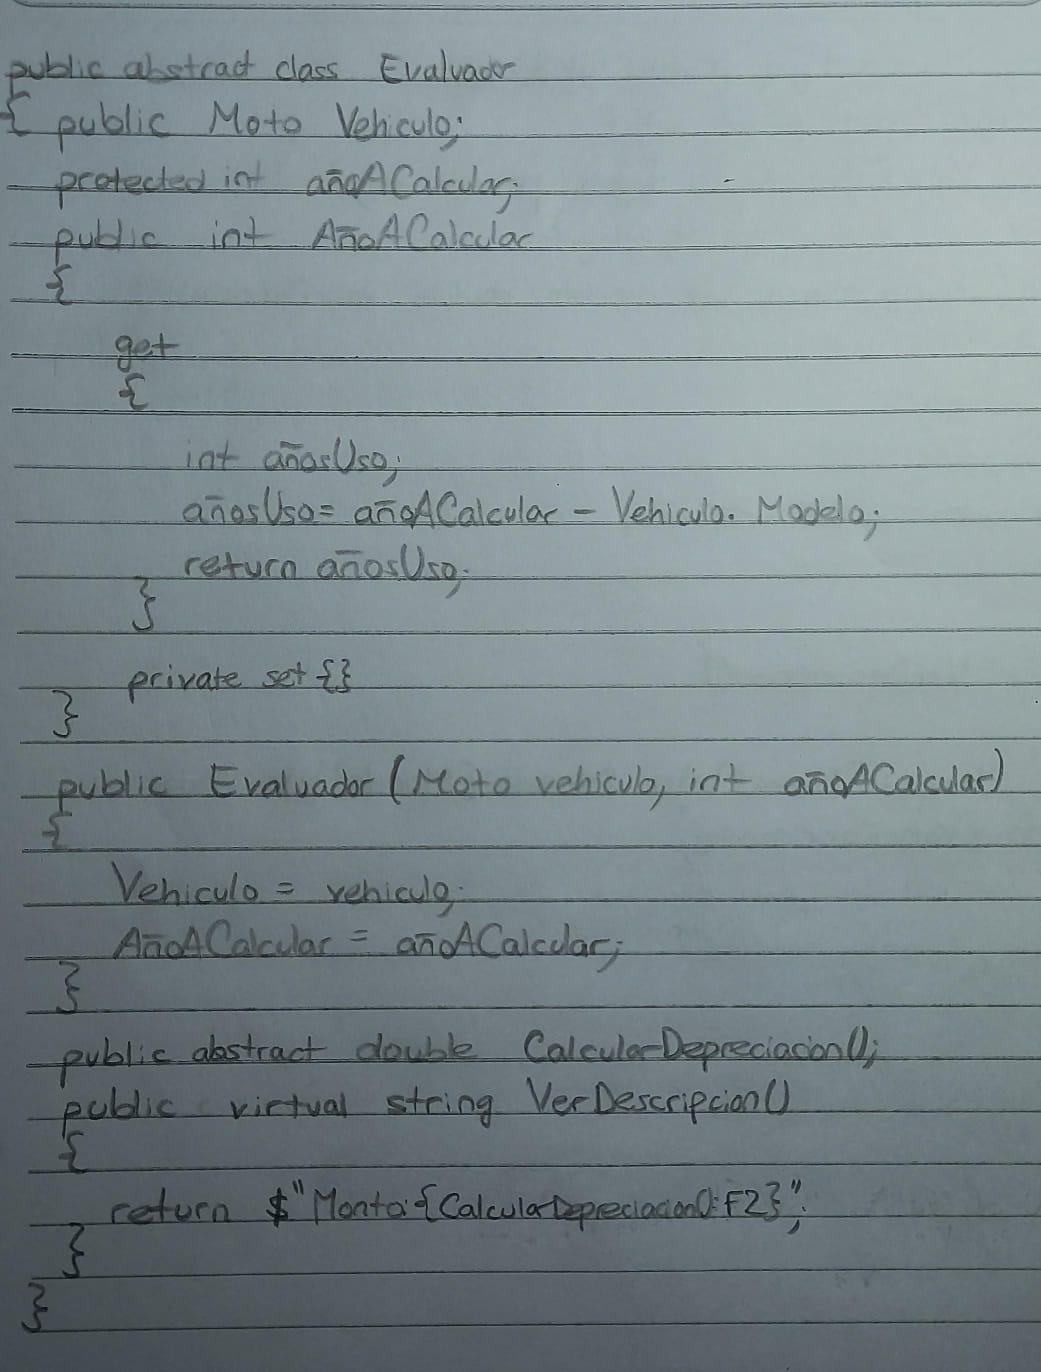 public abstract class Evaluador
{ public Moto Vehiculo;
protected int añoACalcular;
public int AñoACalcular
{
get
{
int añosUso;
añosUso= añoACalcular - Vehiculo. Modelo;
return añosUso;
}
private set {}
}
public Evaluador (Moto vehiculo, int añoACalcular)
{
Vehiculo = vehiculo;
AñoACalcular = añoACalcular;
}
public abstract double CalcularDepreciacion();
public virtual string VerDescripcion()
{
return $"Monto:{CalcularDepreciacion():F2}";
}
}